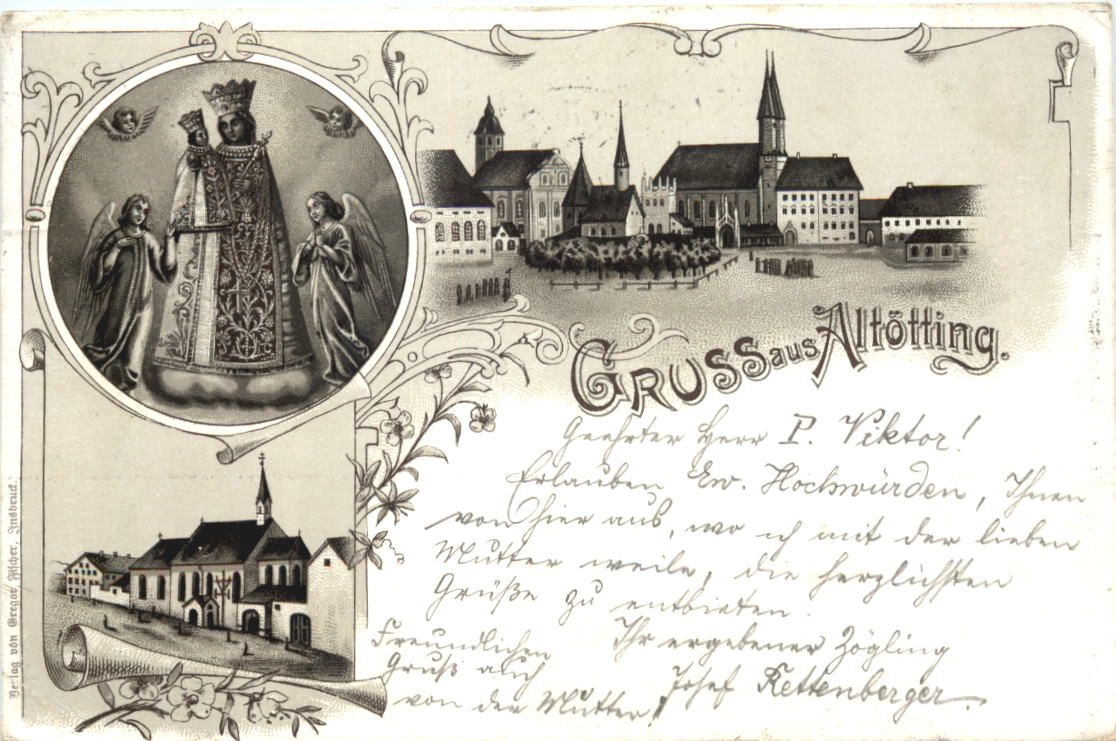 Gruss aus Altötting.
Geehrter Herr P. Viktor!
Erlauben Ew. Hochwürden, Ihnen
von hier aus, wo ich mit der lieben
Mutter weile, die herzlichsten
Grüße zu entbieten.
Ihr ergebener Zögling
Josef Kettenberger.
Freundlichen
Gruß auch
von der Mutter!
Verlag von Gregor Fischer, Insbruck.